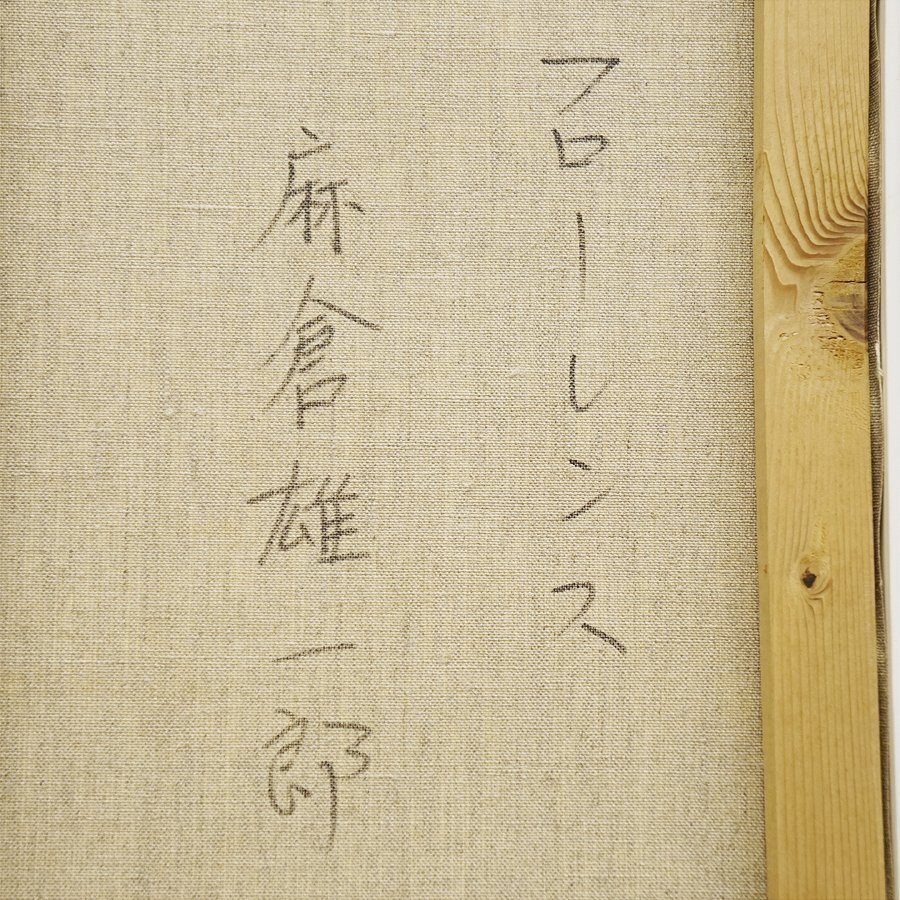 フローレンス
麻倉雄一郎